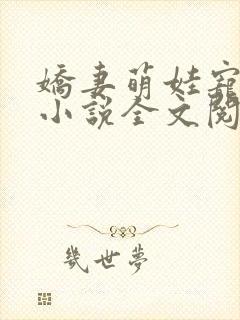 嬌妻萌娃寵
小說全文閱
幾世夢